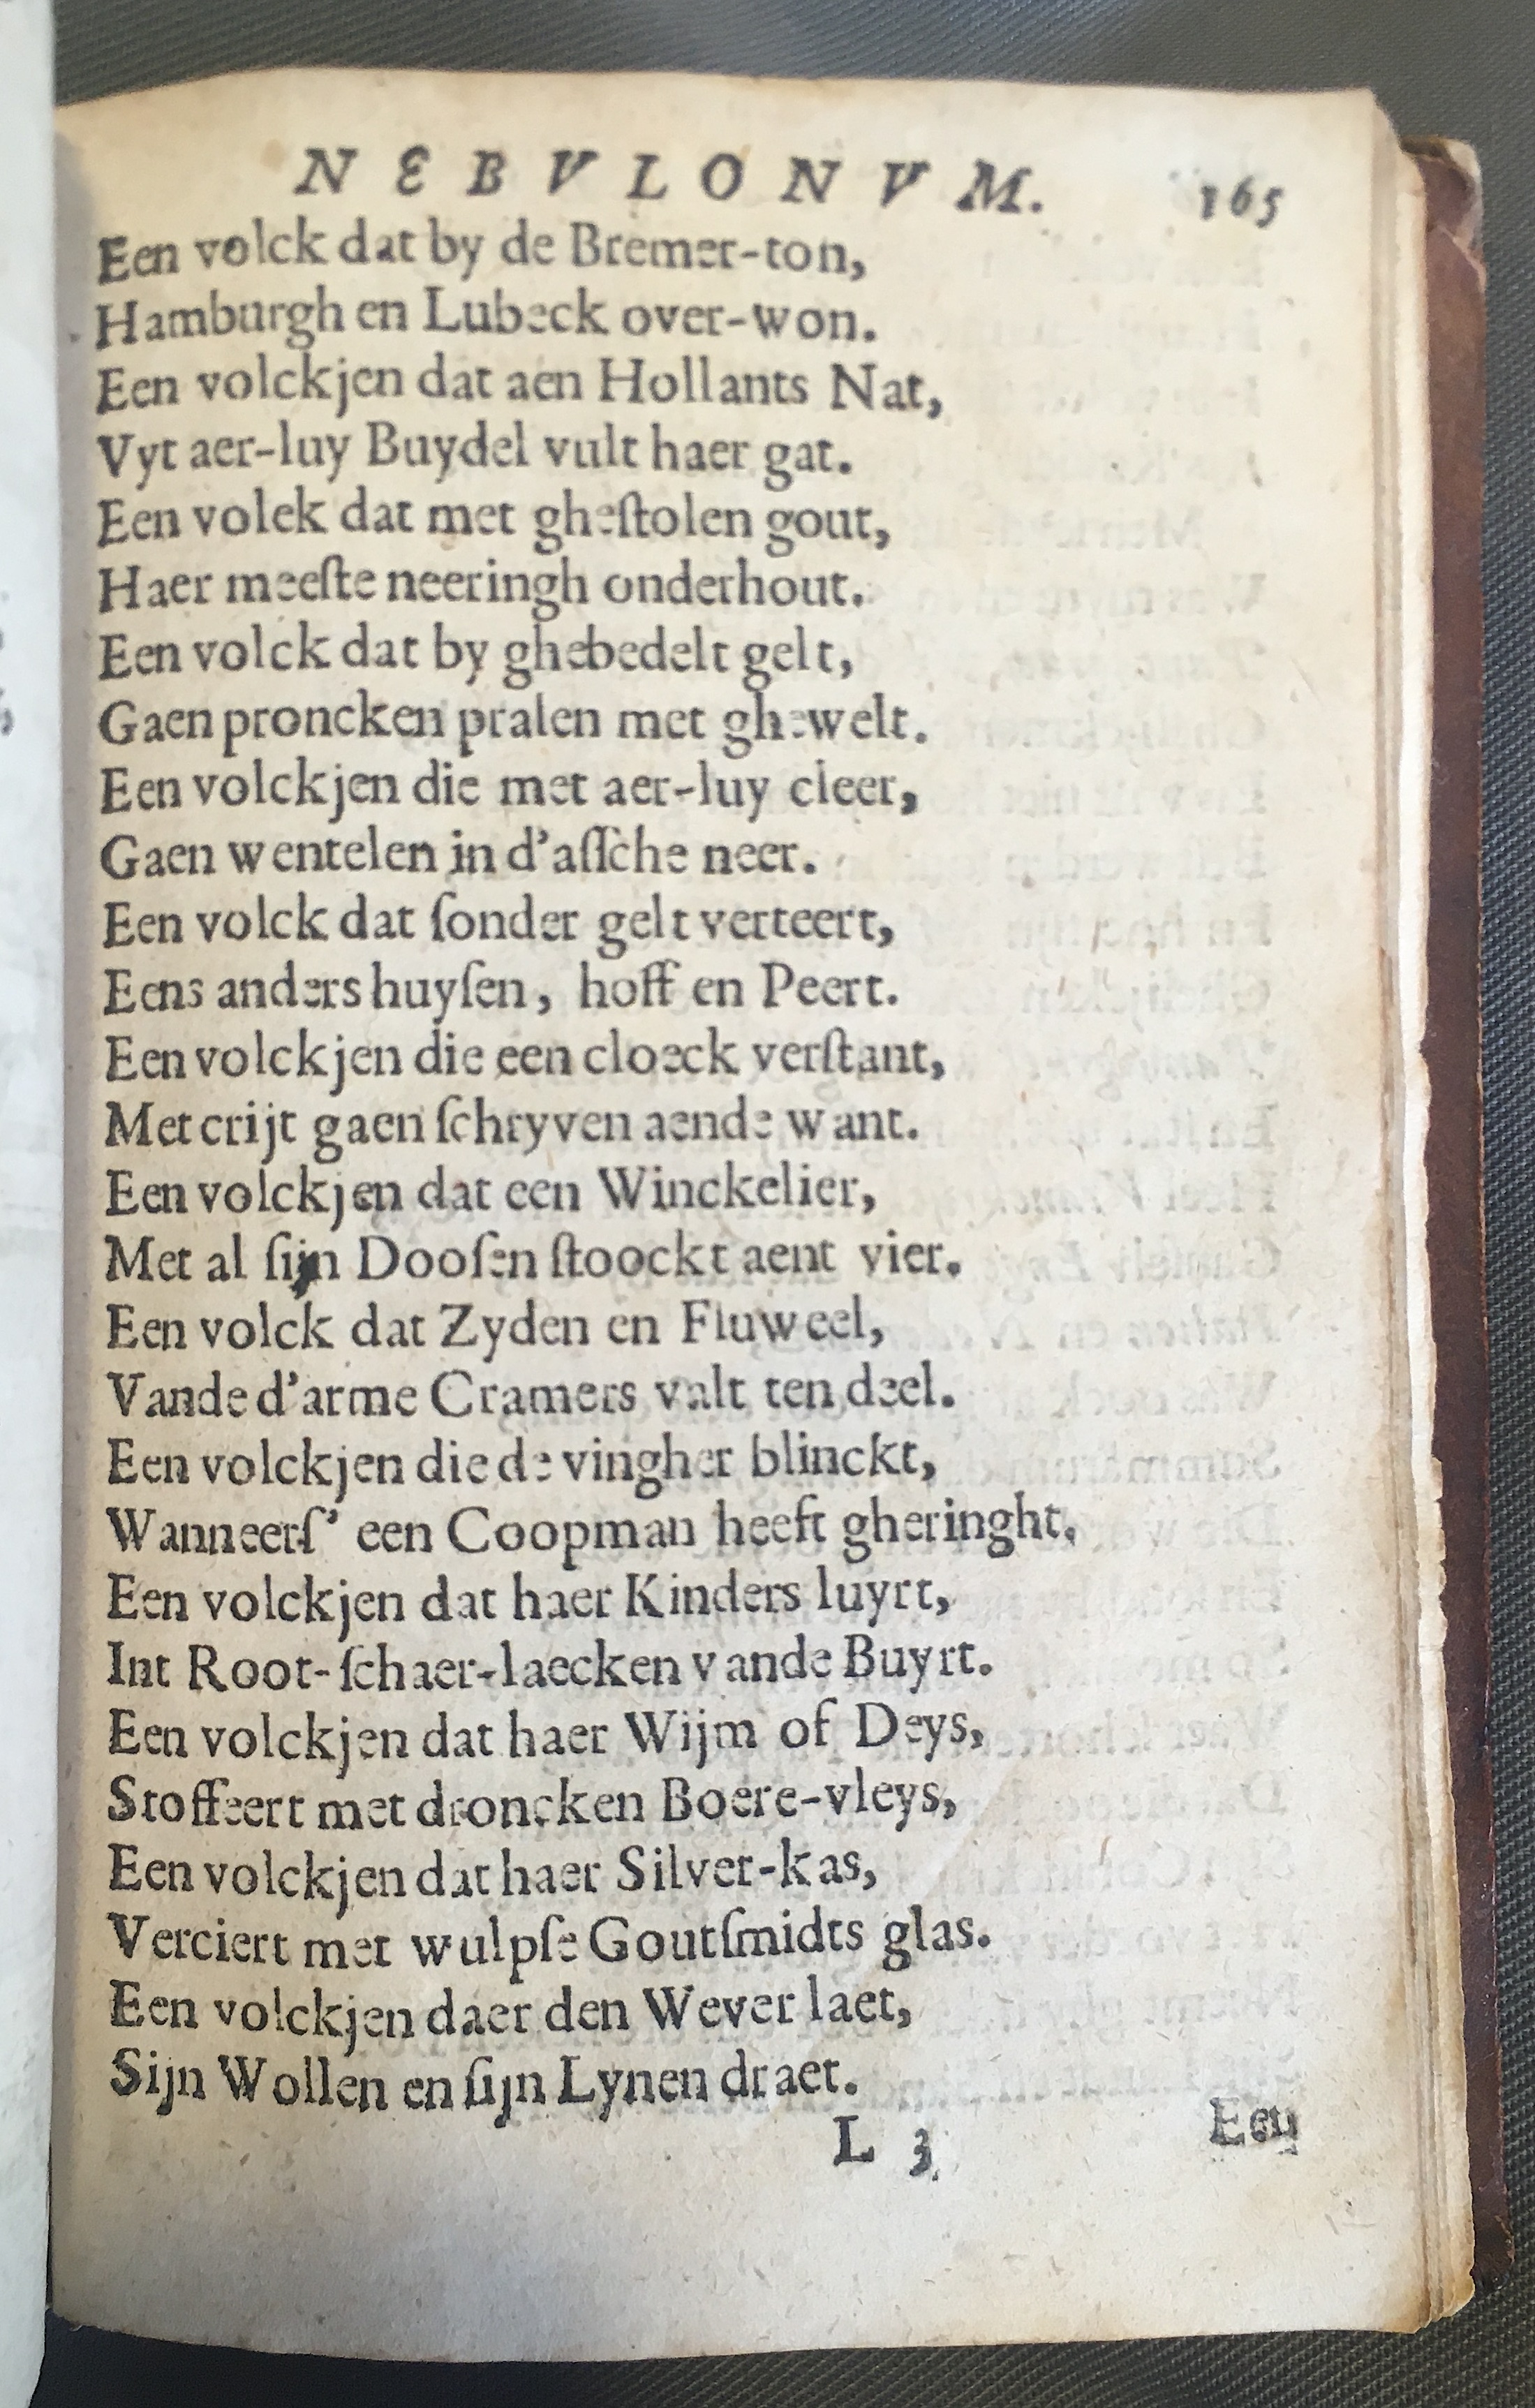 NEBVLONVM. 165
Een volck dat by de Bremer-ton,
Hamburgh en Lubeck over-won.
Een volckjen dat aen Hollants Nat,
Vyt aer-luy Buydel vult haer gat.
Een volek dat met gheſtolen gout,
Haer meeſte neeringh onderhout.
Een volck dat by ghebedelt gelt,
Gaen proncken pralen met ghewelt.
Een volckjen die met aer-luy cleer,
Gaen wentelen in d'aſſche neer.
Een volck dat ſonder gelt verteert,
Eens anders huyſen, hoff en Peert.
Een volckjen die een cloeck verſtant,
Met crijt gaen ſchryven aende want.
Een volckjen dat een Winckelier,
Met al ſijn Dooſen ſtoockt aent vier.
Een volck dat Zyden en Fluweel,
Vande d'arme Cramers valt ten deel.
Een volckjen die de vingher blinckt,
Wanneerſ' een Coopman heeft gheringht.
Een volckjen dat haer Kinders luyrt,
Int Root-ſchaer-laecken vande Buyrt.
Een volckjen dat haer Wijm of Deys,
Stoffeert met droncken Boere-vleys,
Een volckjen dat haer Silver-kas,
Verciert met wulpſe Goutſmidts glas.
Een volckjen daer den Wever laet,
Sijn Wollen en ſijn Lynen draet.
L 3 Een